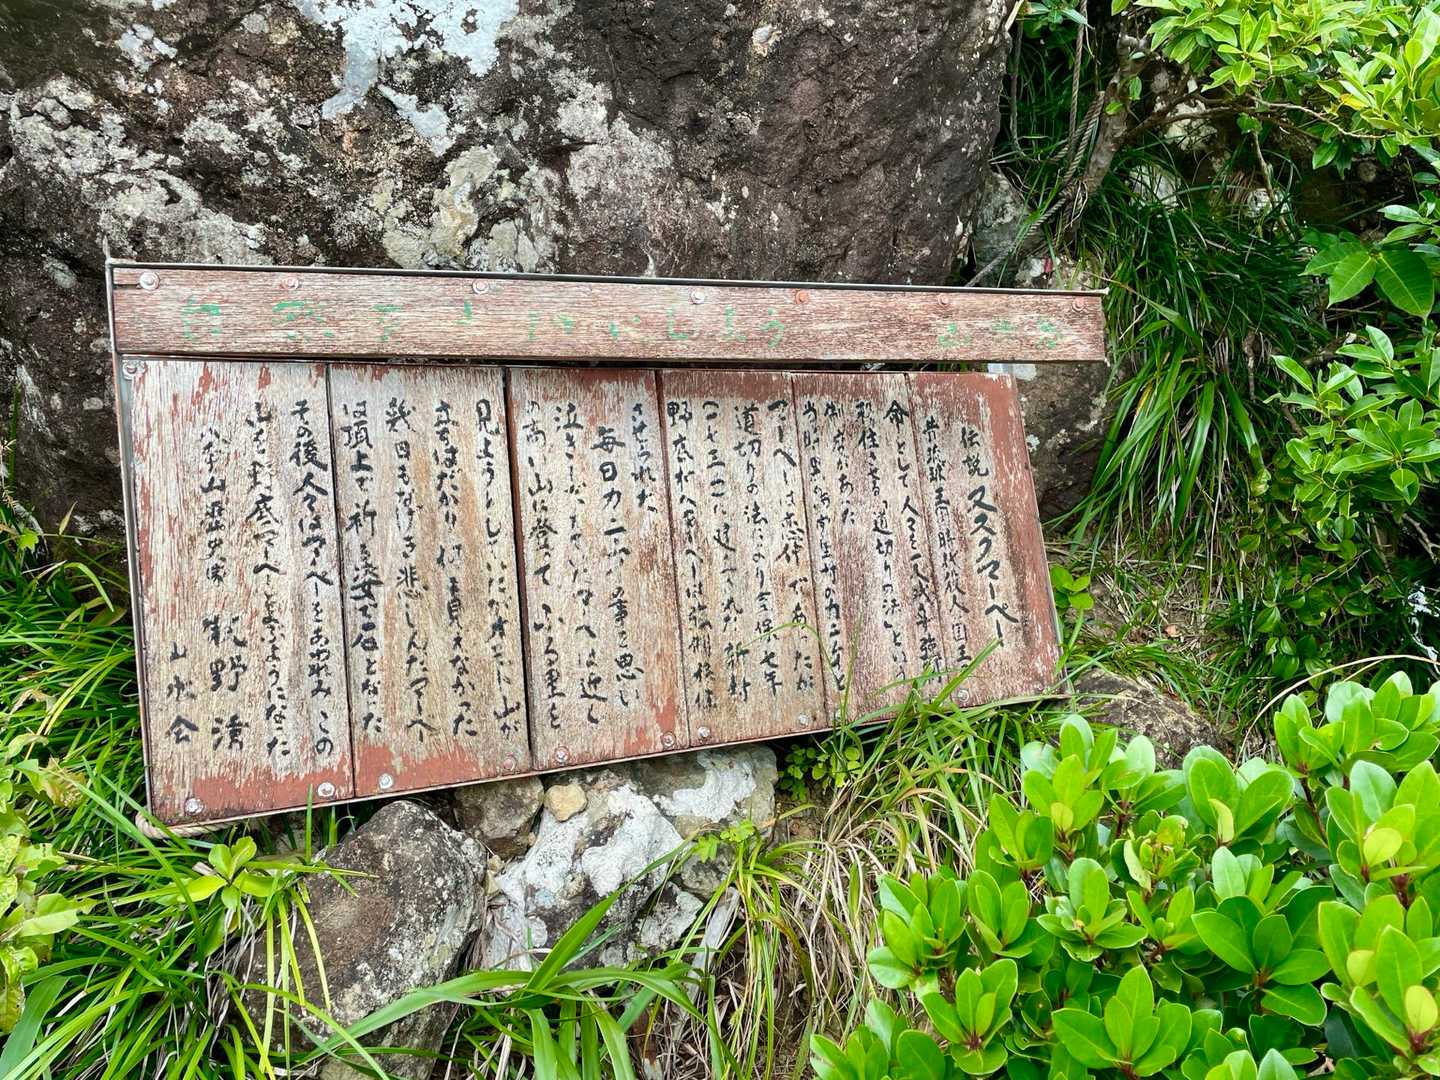 自然を大切にしましょう
伝説 ヌヌクマーペー
昔琉球王府時代役人国王
命として人々を
移住させる「道切りの法」という
制度があった
当時黒島のカニムイと
マーペーは恋仲であったが
道切りの法により享保七年
(一七三二に建てられた新村
野底がへマーペーは強制移住
させられた
毎日カニムイの事を思い
泣きくれていたマーペーは近く
の高い山に登って ふる里を
見ようとしていたがオモト山が
立ちはだかり 何も見えなかった
幾日もなげき悲しんだマーペー
は頂上で祈る姿で石となった
その後人々はマーペーをあわれみ この
山を野底マーペーと云ふようになった
八重山
牧野 清
山水会